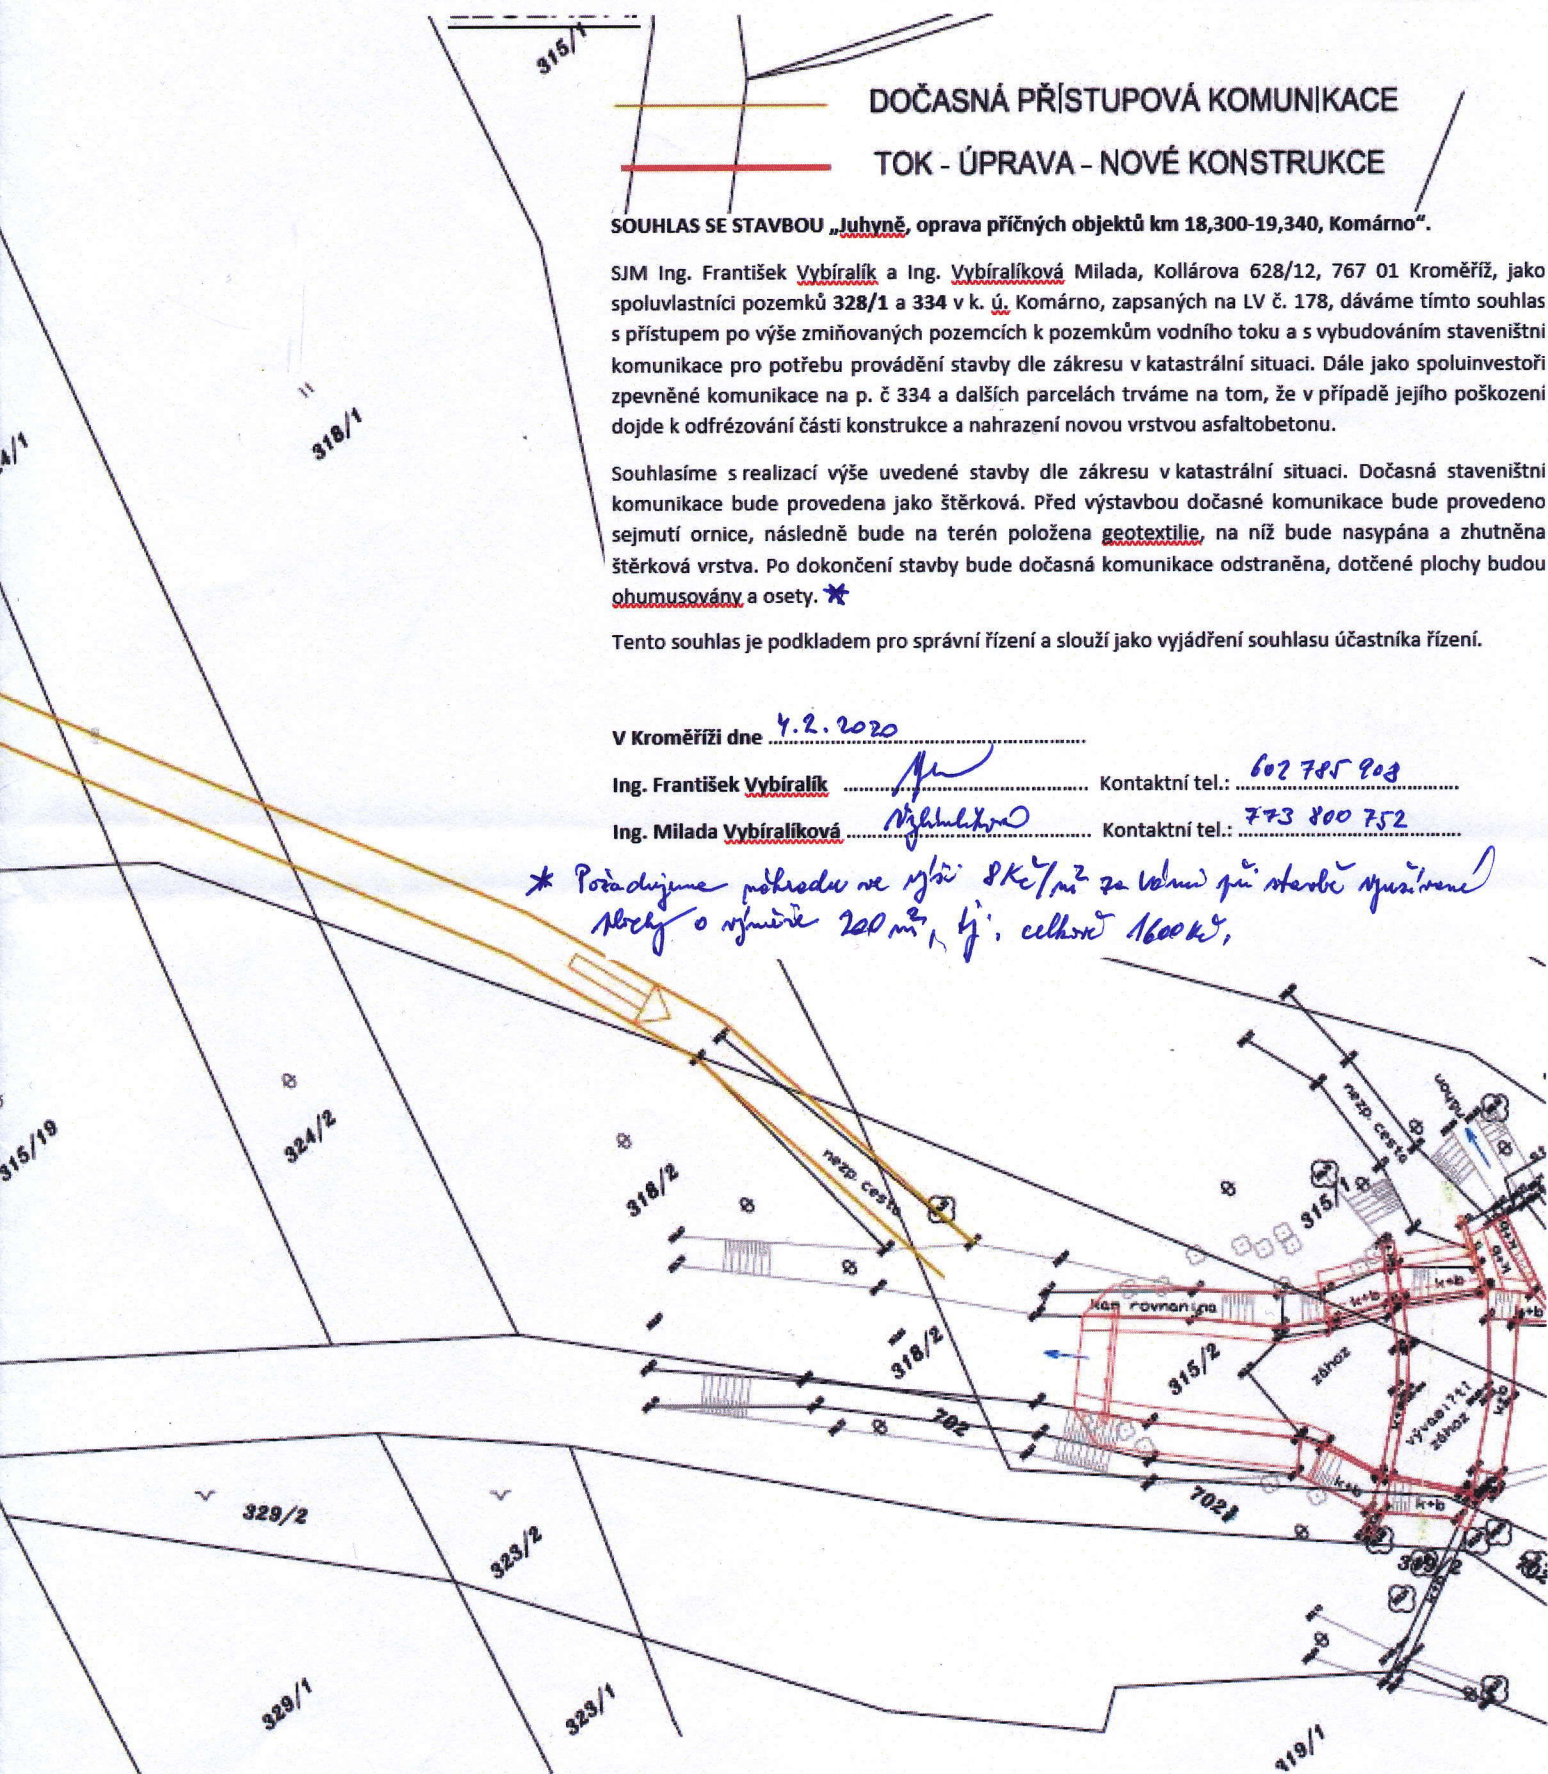 315/1
DOČASNÁ PŘÍSTUPOVÁ KOMUNIKACE
TOK - ÚPRAVA - NOVÉ KONSTRUKCE
SOUHLAS SE STAVBOU „Juhyně, oprava příčných objektů km 18,300-19,340, Komárno“.
SJM Ing. František Vybíralík a Ing. Vybíralíková Milada, Kollárova 628/12, 767 01 Kroměříž, jako
spoluvlastníci pozemků 328/1 a 334 v k. ú. Komárno, zapsaných na LV č. 178, dáváme tímto souhlas
s přístupem po výše zmiňovaných pozemcích k pozemkům vodního toku a s vybudováním staveništni
komunikace pro potřebu provádění stavby dle zákresu v katastrální situaci. Dále jako spoluinvestoři
zpevněné komunikace na p. č 334 a dalších parcelách trváme na tom, že v případě jejího poškozeni
dojde k odfrézování části konstrukce a nahrazení novou vrstvou asfaltobetonu.
Souhlasíme s realizací výše uvedené stavby dle zákresu v katastrální situaci. Dočasná staveništni
komunikace bude provedena jako štěrková. Před výstavbou dočasné komunikace bude provedeno
sejmutí ornice, následně bude na terén položena geotextilie, na níž bude nasypána a zhutněna
štěrková vrstva. Po dokončení stavby bude dočasná komunikace odstraněna, dotčené plochy budou
ohumusovány a osety. *
Tento souhlas je podkladem pro správní řízení a slouží jako vyjádření souhlasu účastníka řízení.
V Kroměříži dne 4.2.2020
Ing. František Vybíralík Kontaktní tel.: 602 785 908
Ing. Milada Vybíralíková Vybíralíková Kontaktní tel.: 773 800 752
* Požadujeme náhradu ve výši 8 Kč/m² za Vámi při stavbě využívané
plochy o výměře 200 m², tj. celkově 1600 Kč.
318/1
4/1
315/19
324/2
318/2
nezp. cesta
nezp. cesta
náhon
315/1
k+b
k+b
k+b
k+b
k+b
kam rovnanina
318/2
315/2
zához
vývařiště
zához
k+b
k+b
702
702
k+b
k+b
329/2
323/2
319/2
702
k+b
329/1
323/1
319/1